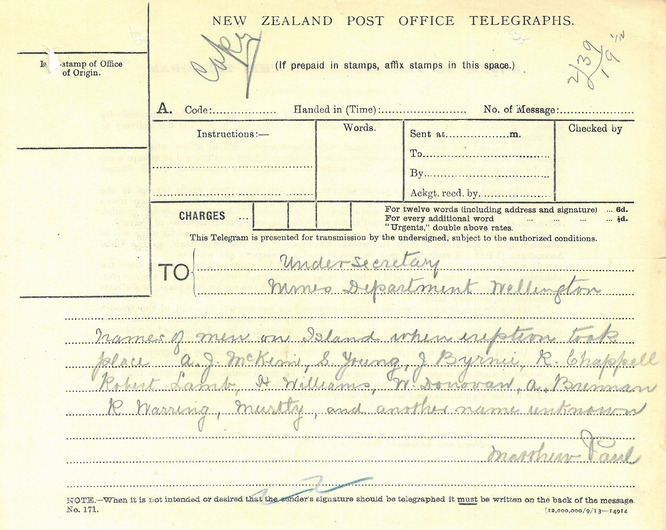 NEW ZEALAND POST OFFICE TELEGRAPHS.
Copy
(If prepaid in stamps, affix stamps in this space.)
-stamp of Office
of Origin.
A. Code:............ Handed in (Time):............ No. of Message:............
Instructions:—
Words.
Sent at............m.
To............
By............
Ackgt. recd. by............
Checked by
CHARGES ...
For twelve words (including address and signature) ... 6d.
For every additional word ... ... ... ½d.
"Urgents," double above rates.
This Telegram is presented for transmission by the undersigned, subject to the authorized conditions.
TO
Undersecretary
Mines Department Wellington
Names of men on Island when eruption took
place A. J. McKim, S Young, J Byrne, R. Chappell
Robert Lamb, H Williams, W. Donovan, A. Brennan
R Warring, Murtty, and another name unknown
Matthew Paul
NOTE.—When it is not intended or desired that the sender's signature should be telegraphed it must be written on the back of the message.
No. 171.
[12,000,000/9/13—14914